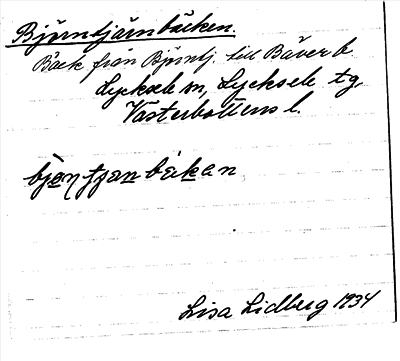 Björntjärnbäcken.
Bäck från Björntj. till Bäverb.
Lycksele sn, Lycksele tg,
Västerbottens l.
Lisa Lidberg 1934